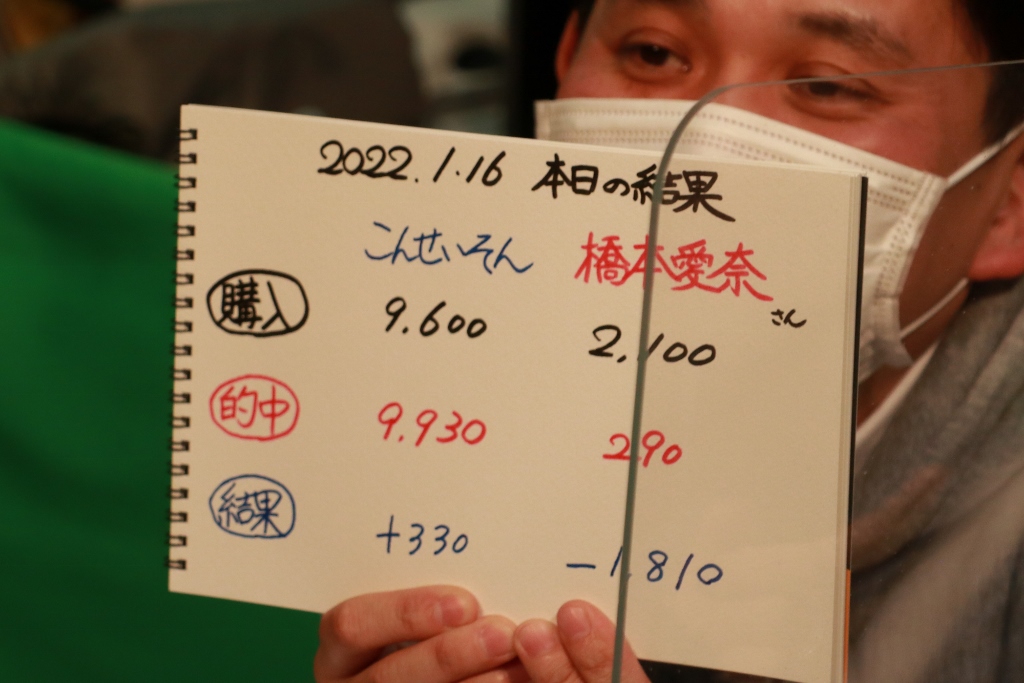 2022.1.16 本日の結果
こんせいそん 橋本愛奈さん
購入 9.600 2,100
的中 9.930 290
結果 +330 -1.810